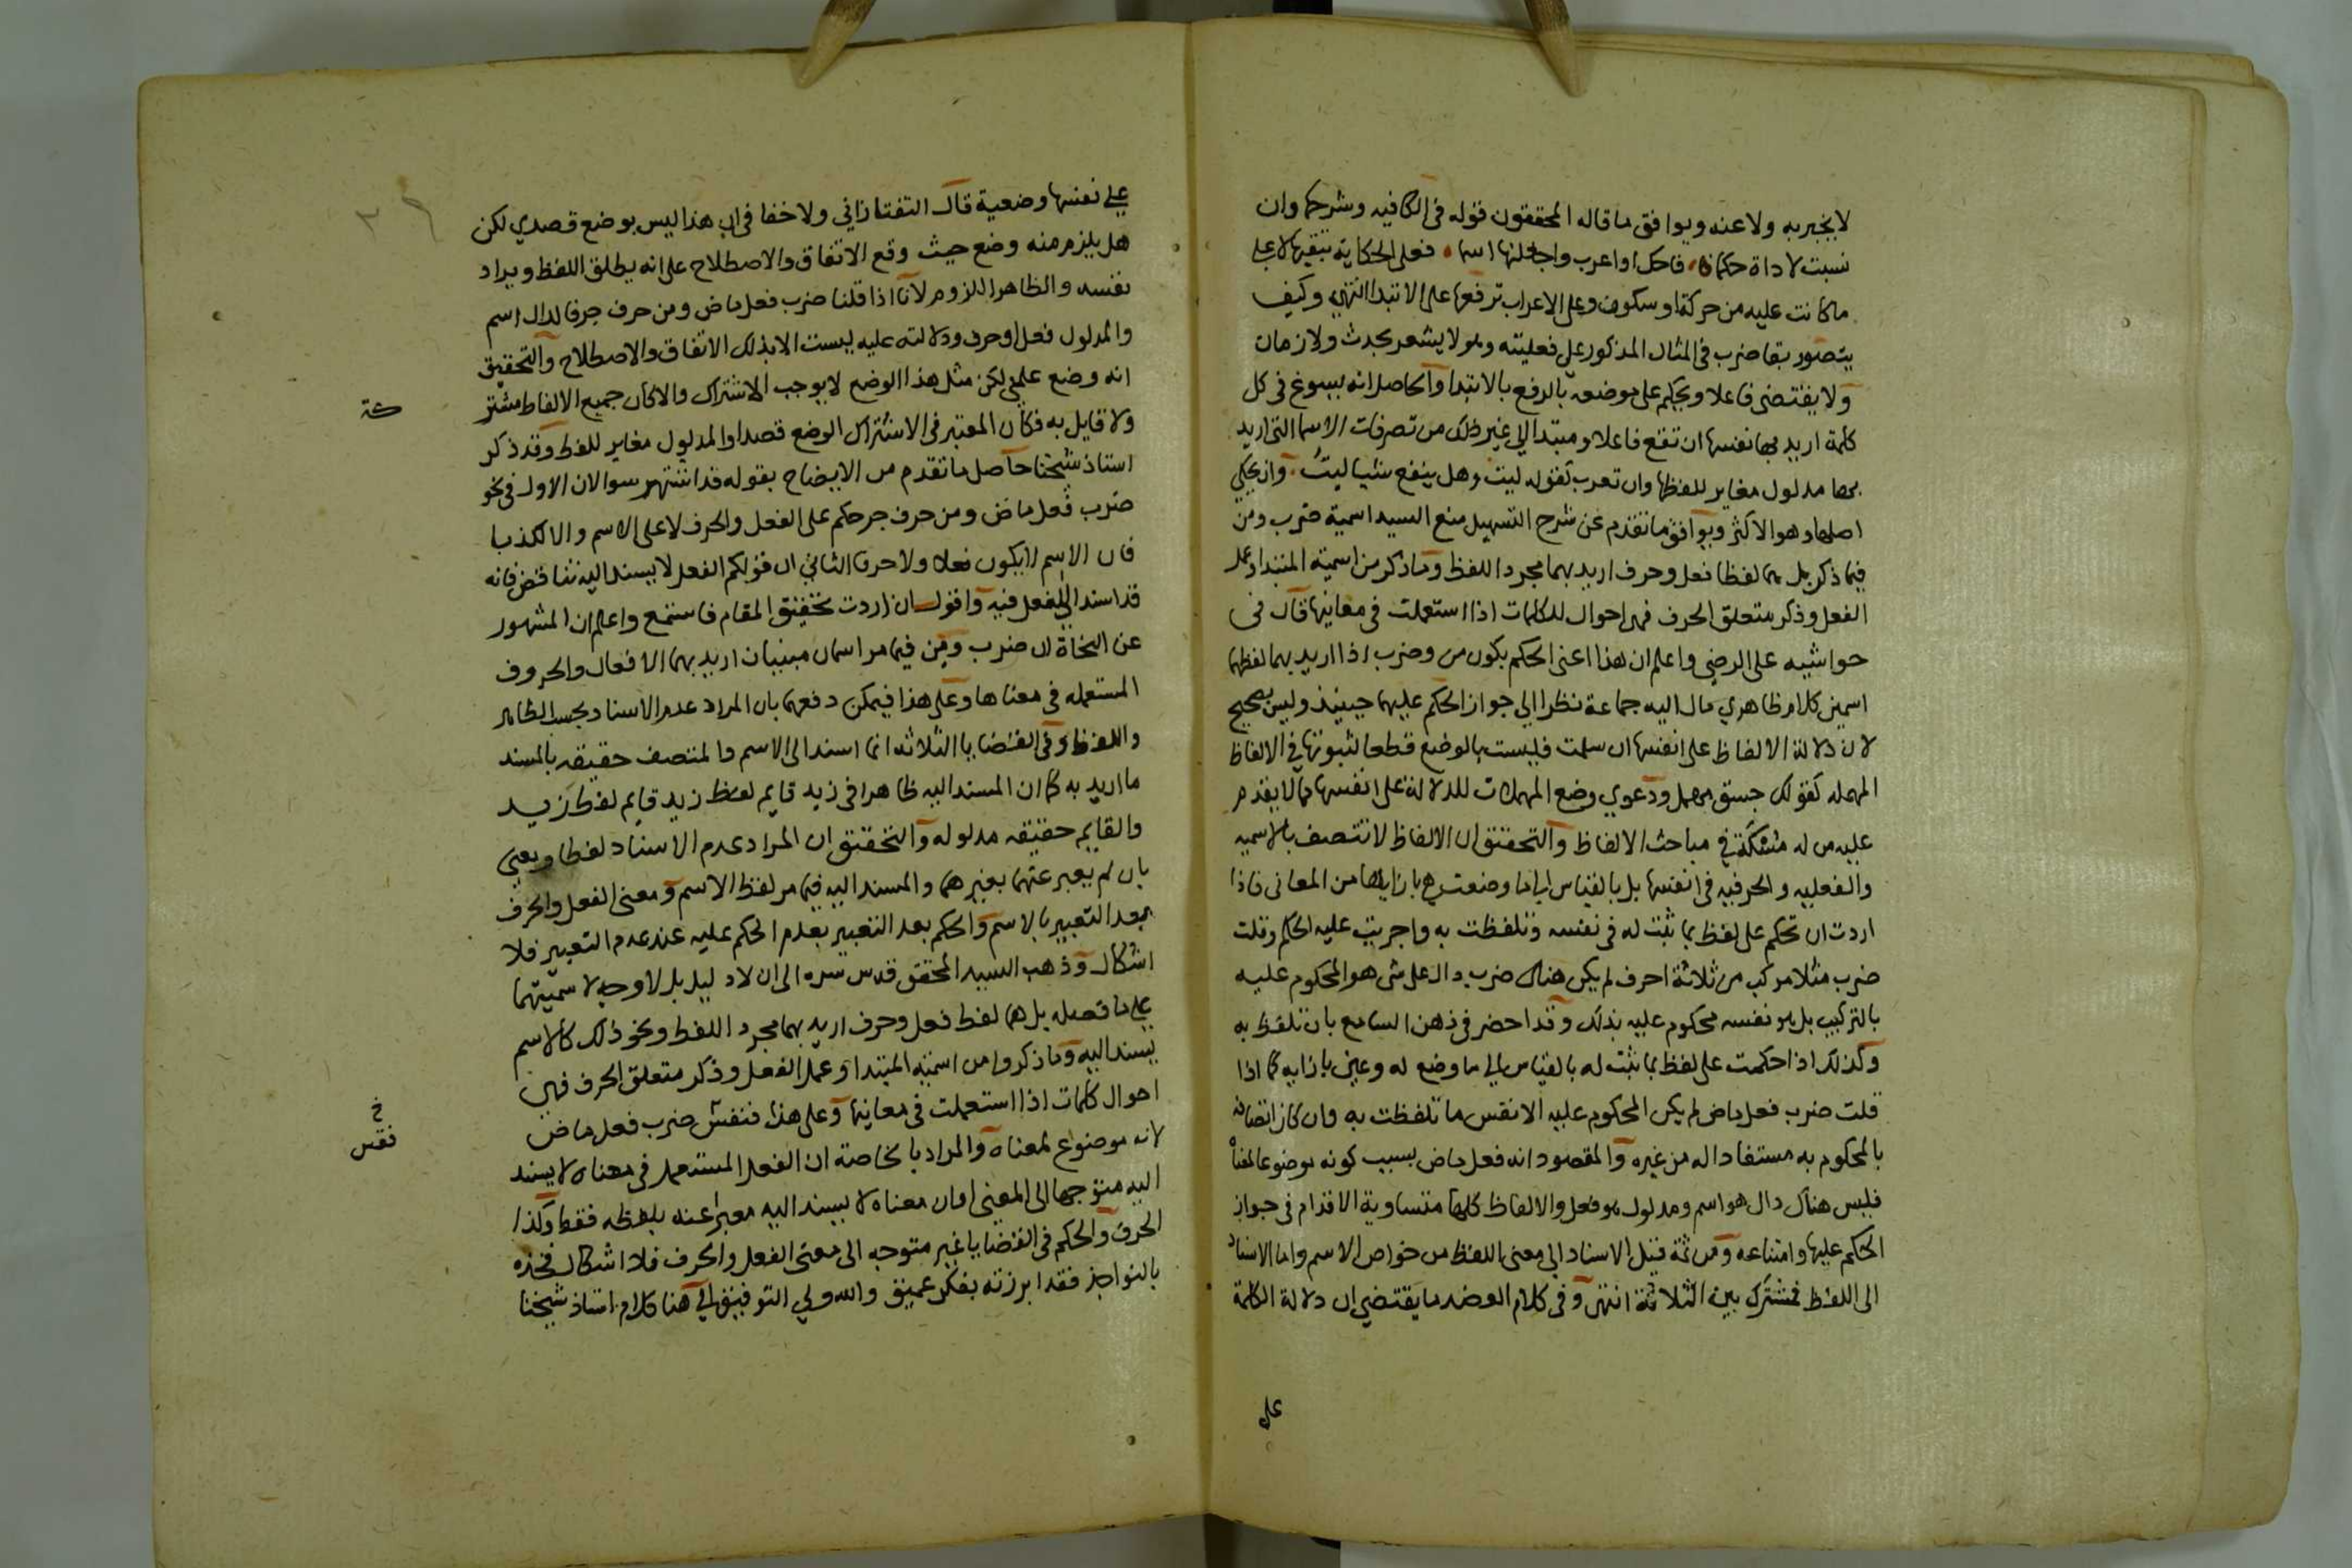 لا يخبر به ولا عنه ويوافق ما قاله المحققون قوله في الكافيه وشرحها وان
نسبت لاداة حكما فاحك او اعرب واجعلنها اسما فعلى الحكاية تبقيها على
ما كانت عليه من حركة او سكون وعلى الاعراب ترفعها على الابتدا انتهى وكيف
يتصور بقا ضرب في المثال المذكور على فعليته وهو لا يشعر بحدث ولا زمان
ولا يقتضي فاعلا ويحكم على موضعه بالرفع بالابتدا والحاصل انه يسوغ في كل
كلمة اريد بها نفسها ان تقع فاعلا ومبتدا الى غير ذلك من تصرفات الاسما التي اريد
بها مدلول مغاير للفظها وان تعرب كقوله ليت وهل ينفع شيا ليت وان يحكى
اصلها وهو الاكثر ويوافق ما تقدم عن شرح التسهيل منع السيد اسمية ضرب ومن
فيما ذكر بل هما لفظا فعل وحرف اريد بهما مجرد اللفظ وما ذكر من اسمية المبتدا وعمل
الفعل وذكر متعلق الحرف فهي احوال للكلمات اذا استعملت في معانيها قال في
حواشيه على الرضي واعلم ان هذا اعنى الحكم بكون من وضرب اذا اريد بهما لفظهما
اسمين كلام ظاهري مال اليه جماعة نظرا الى جواز الحكم عليهما حينيذ وليس بصحيح
لان دلالة الالفاظ على انفسها ان سلمت فليست بالوضع قطعا لثبوتها في الالفاظ
المهمله كقولك جسق مهمل ودعوي وضع المهملات للدلالة على انفسها مما لا يقدم
عليه من له مسكة في مباحث الالفاظ والتحقيق ان الالفاظ لا تتصف بالاسميه
والفعليه والحرفيه في انفسها بل بالقياس الى ما وضعت هي بازايها من المعاني فاذا
اردت ان تحكم على لفظ بما ثبت له في نفسه وتلفظت به واجريت عليه الحكم وقلت
ضرب مثلا مركب من ثلاثة احرف لم يكن هناك ضرب دال على شي هو المحكوم عليه
بالتركيب بل هو نفسه محكوم عليه بذلك وقد احضر في ذهن السامع بان تلفظ به
وكذلك اذا حكمت على لفظ بما ثبت له بالقياس الى ما وضع له وعين بازايه كما اذا
قلت ضرب فعل ماض لم يكن المحكوم عليه الا نفس ما تلفظت به وان كان اتصافه
بالمحكوم به مستفادا له من غيره والمقصود انه فعل ماض بسبب كونه موضوعا لمعناه
فليس هناك دال هو اسم ومدلول هو فعل والالفاظ كلها متساوية الاقدام في جواز
الحكم عليها وامتناعه ومن ثمة قيل الاسناد الى معنى اللفظ من خواص الاسم واما الاسناد
الى اللفظ فمشترك بين الثلاثة انتهى وفي كلام العضد ما يقتضي ان دلالة الكلمة
على
على نفسها وضعية قال التفتازاني ولا خفا في ان هذا ليس بوضع قصدي لكن
هل يلزم منه وضع حيث وقع الاتفاق والاصطلاح على انه يطلق اللفظ ويراد
نفسه والظاهر اللزوم لانا اذا قلنا ضرب فعل ماض ومن حرف جر فالدال اسم
والمدلول فعل او حرف ودلالته عليه ليست الا بذلك الاتفاق والاصطلاح والتحقيق
انه وضع علمي لكن مثل هذا الوضع لا يوجب الاشتراك والا لكان جميع الالفاظ مشتر
كة
ولا قايل به فكان المعتبر في الاشتراك الوضع قصدا والمدلول مغاير للفظ وقد ذكر
استاذ شيخنا حاصل ما تقدم من الايضاح بقوله قد اشتهر سوالان الاول في نحو
ضرب فعل ماض ومن حرف جر حكم على الفعل والحرف لا على الاسم والا لكذبا
فان الاسم لا يكون فعلا ولا حرفا الثاني ان قولكم الفعل لا يسند اليه تناقض فانه
قد اسند الى الفعل فيه واقول ان اردت تحقيق المقام فاستمع واعلم ان المشهور
عن النحاة ان ضرب ومن فيما مر اسمان مبنيان اريد بهما الافعال والحروف
المستعمله في معناها وعلى هذا فيمكن دفعهما بان المراد عدم الاسناد بحسب الظاهر
واللفظ وفي القضايا الثلاثه انما اسند الى الاسم والمتصف حقيقه بالمسند
ما اريد به كما ان المسند اليه ظاهرا في زيد قايم لفظ زيد قايم لفظ زيد
والقايم حقيقه مدلوله والتحقيق ان المراد عدم الاسناد لفظا ومعنى
بان لم يعبر عنهما بغيرهما والمسند اليه فيما مر لفظ الاسم ومعنى الفعل والحرف
بعد التعبير بالاسم والحكم بعد التعبير بعدم الحكم عليه عند عدم التعبير فلا
اشكال وذهب السيد المحقق قدس سره الى ان لا دليل بل لا وجه لاسميتهما
على ما فصله بل هما لفظ فعل وحرف اريد بهما مجرد اللفظ ونحو ذلك كالاسم
يسند اليه وما ذكروا من اسميه المبتدا وعمل الفعل وذكر متعلق الحرف فهي
احوال كلمات اذا استعملت في معانيها وعلى هذا فنفس ضرب فعل ماض
خ
فنفس
لانه موضوع لمعناه والمراد بالخاصة ان الفعل المستعمل في معناه لا يسند
اليه متوجها الى المعنى او ان معناه لا يسند اليه معبرا عنه بلفظه فقط وكذا
الحرف والحكم في القضايا غير متوجه الى معنى الفعل والحرف فلا اشكال فخذه
بالنواجذ فقد ابرزته بفكر عميق والله ولي التوفيق الى هنا كلام استاذ شيخنا